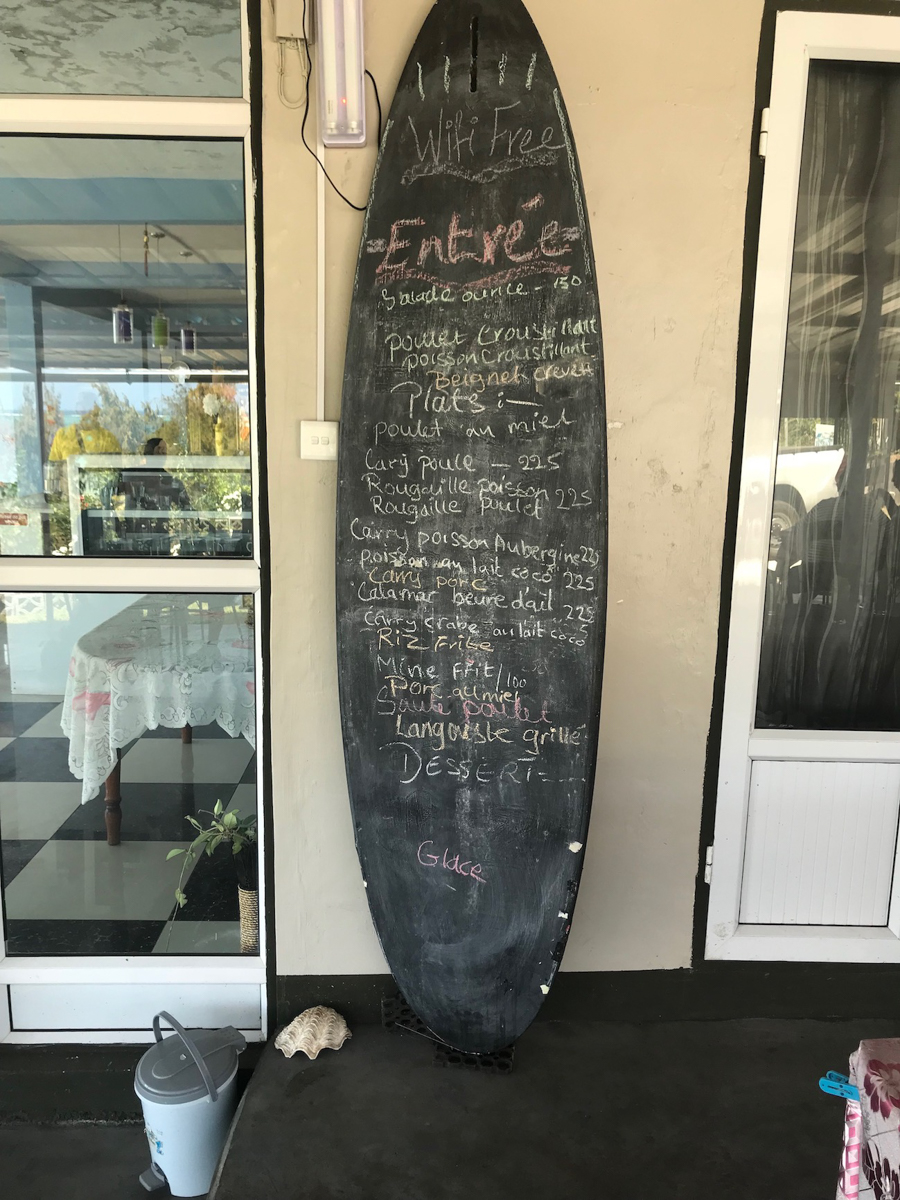 Wifi Free
=Entrée=
Salade ourite - 150
poulet Croustillant
poisson Croustillant
Beignet crevett
Plats :—
poulet au miel
Cary poule — 225
Rougaille poisson 225
Rougaille poulet
Carry poisson Aubergine 225
poisson au lait coco 225
Carry porc
Calamar beure d'ail 225
carry crabe au lait coco
Riz Frite
Mine Frit/100
Porc au miel
Saute poulet
Langouste grillé
DESSERT-
Glace